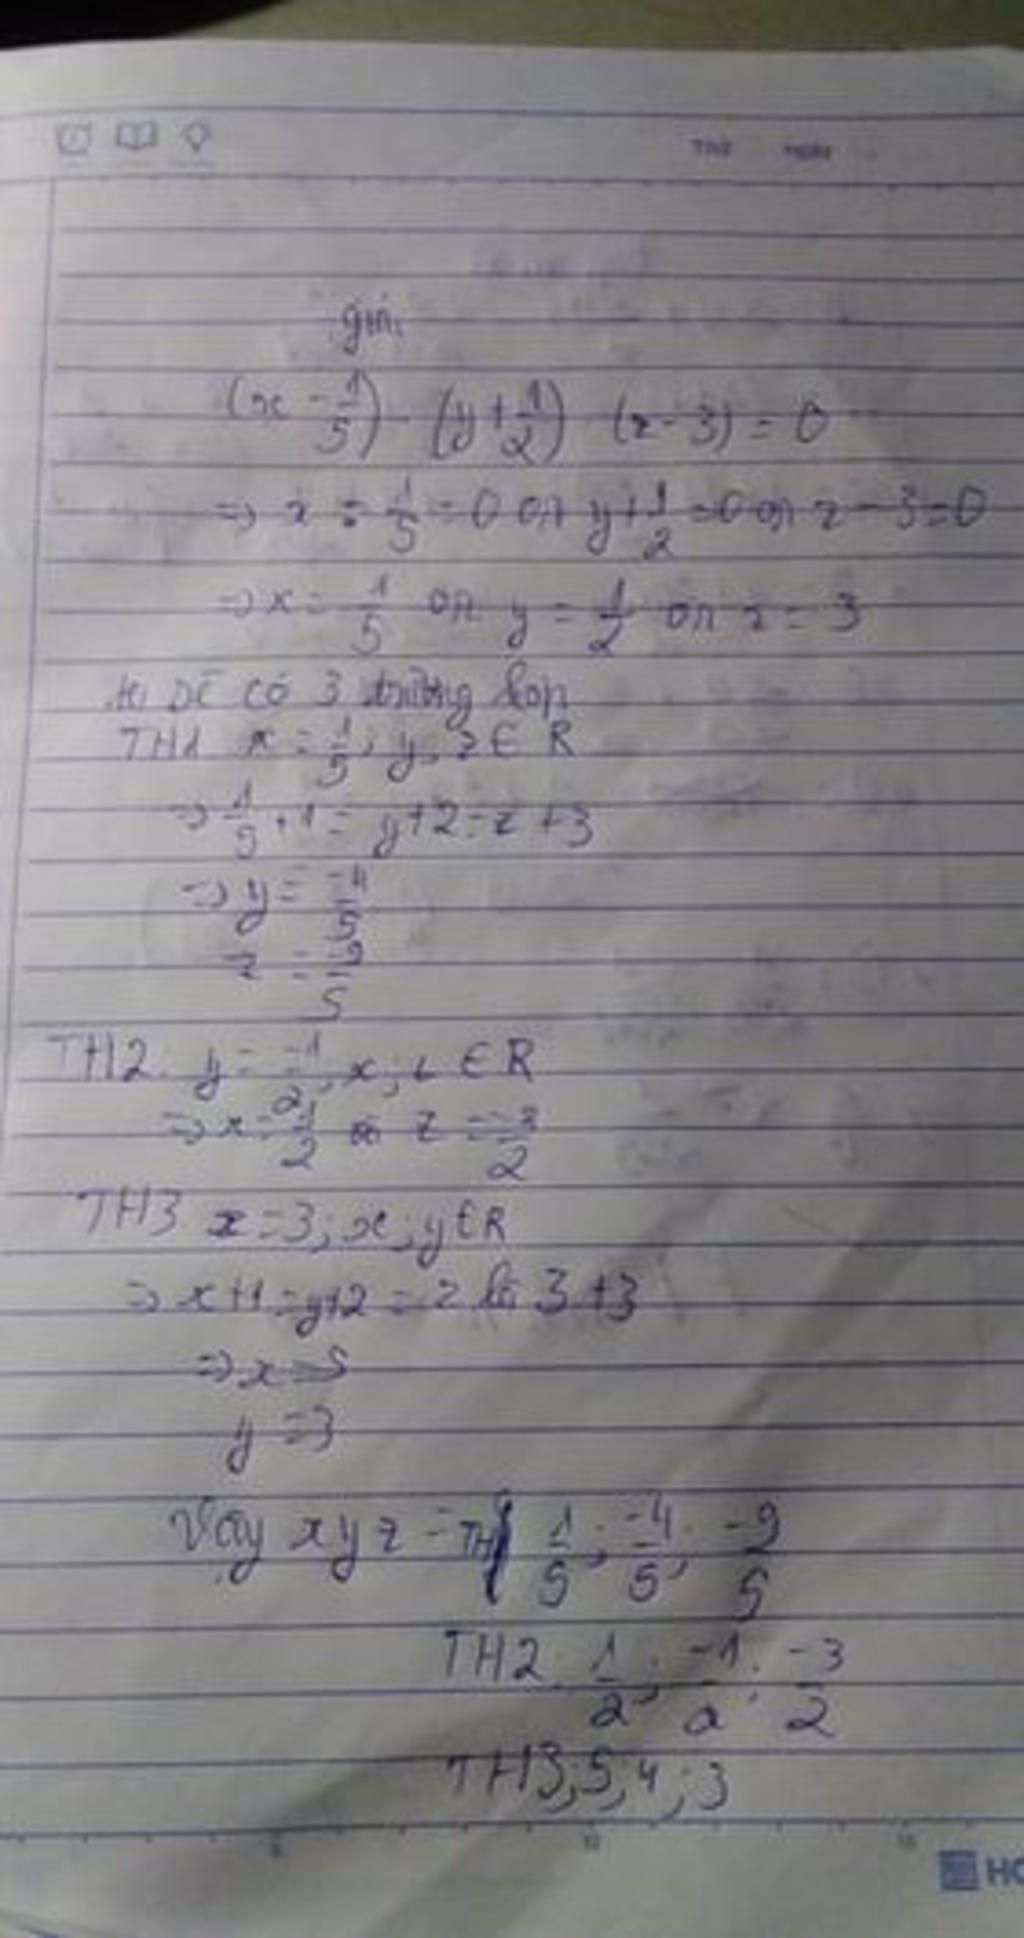 giải
(x - 1/5) . (y + 1/2) (z - 3) = 0
=> x - 1/5 = 0 or y + 1/2 = 0 or z - 3 = 0
=> x = 1/5 or y = 1/2 or z = 3
có 3 trường hợp
TH1 x = 1/5, y, z ∈ R
=> 1/5 + 1 = y + 2 = z + 3
=> y = -4/5
z = -9/5
TH2. y = -1/2, x, z ∈ R
=> x = 1/2 z = -3/2
TH3 z = 3; x; y ∈ R
=> x + 1 = y + 2 = 3 + 3
=> x = 5
y = 3
Vậy x y z = TH1 1/5; -4/5; -9/5
TH2 1/2; -1/2; -3/2
TH3; 5, 4; 3
5 10 15